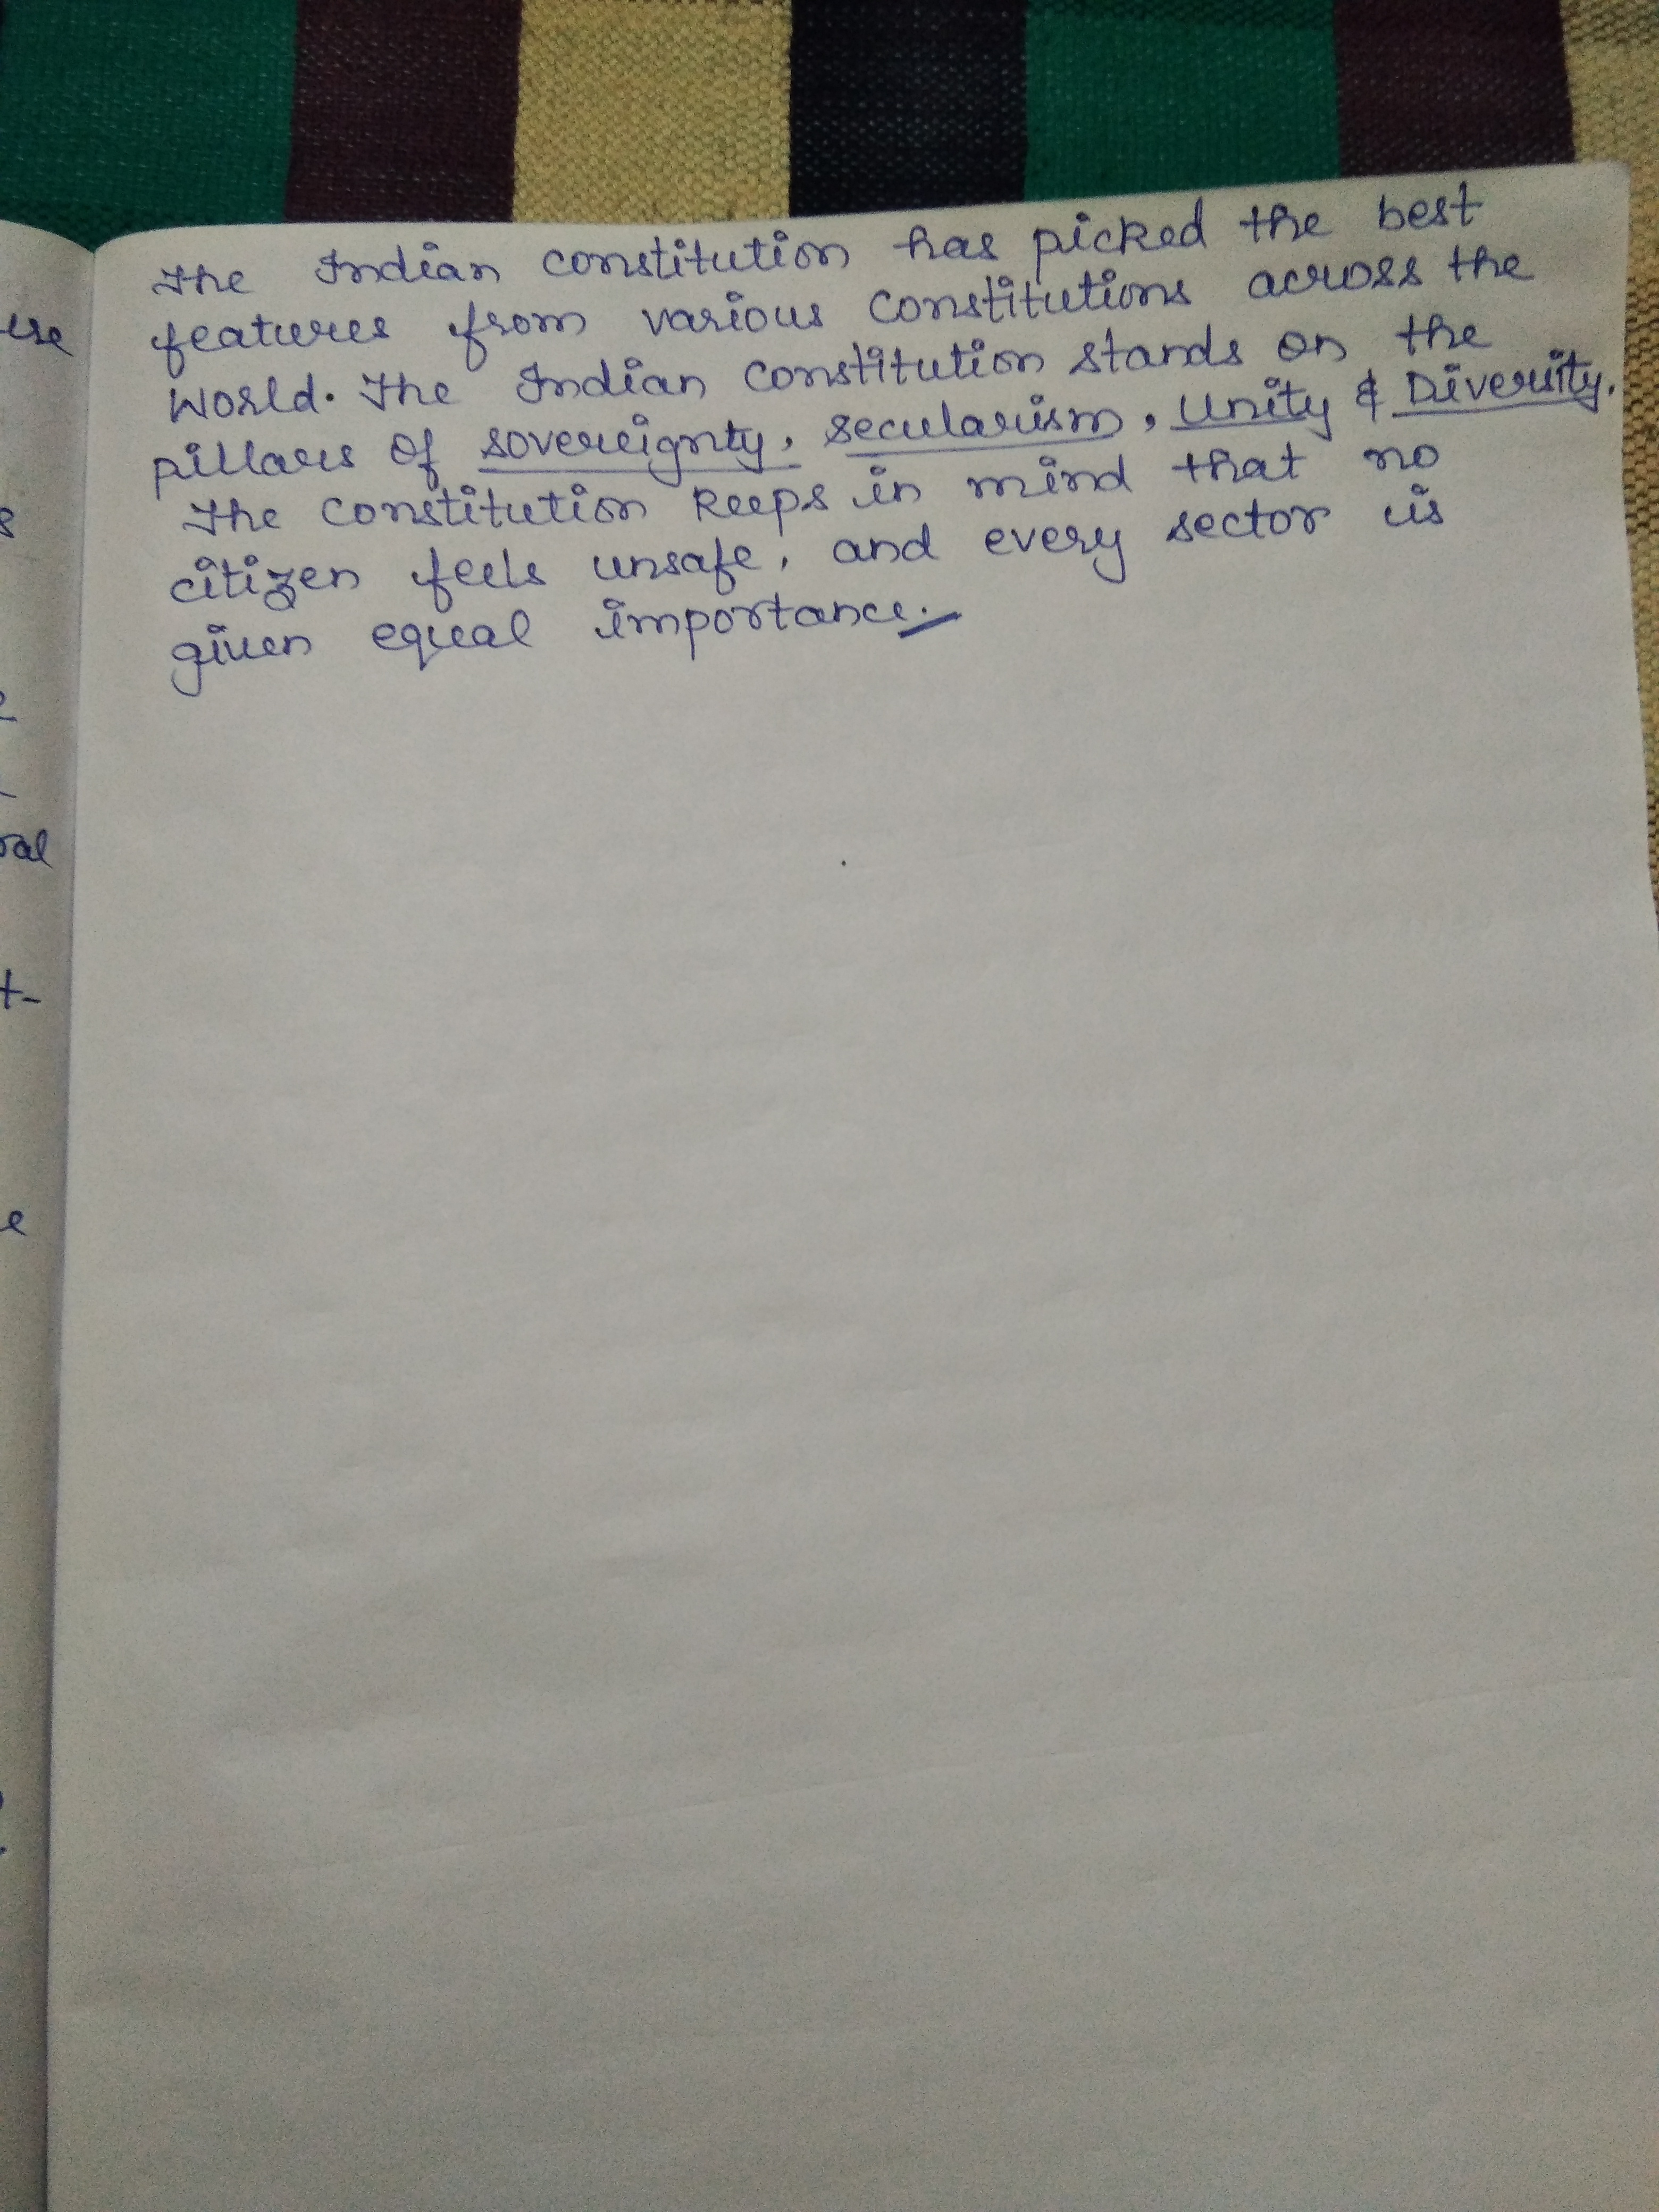 The Indian constitution has picked the best
features from various constitutions across the
World. The Indian Constitution stands on the
pillars of sovereignty, secularism, Unity & Diversity.
The constitution keeps in mind that no
citizen feels unsafe, and every sector is
given equal importance.